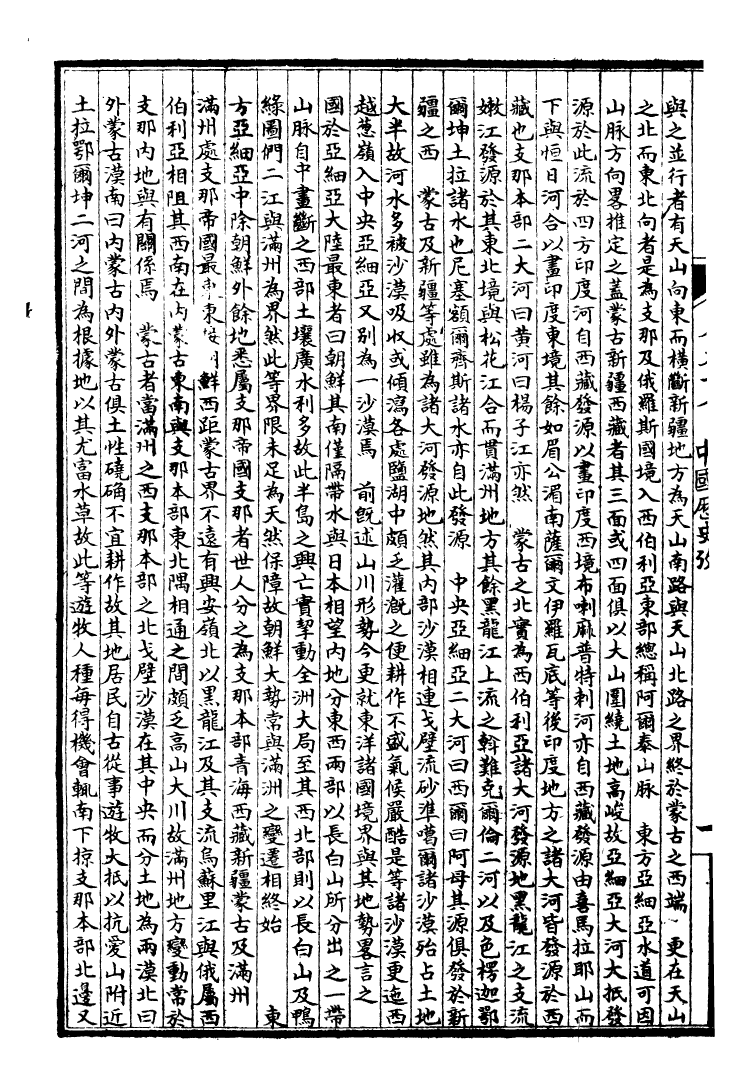 與之並行者有天山向東而橫斷新疆地方為天山南路與天山北路之界終於蒙古之西端 更在天山
之北而東北向者是為支那及俄羅斯國境入西伯利亞東部總稱阿爾泰山脉 東方亞細亞水道可因
山脉方向畧推定之蓋蒙古新疆西藏者其三面或四面俱以大山圍繞土地高峻故亞細亞大河大抵發
源於此流於四方印度河自西藏發源以畫印度西境布喇麻普特剌河亦自西藏發源由喜馬拉耶山而
下與恒日河合以畫印度東境其餘如眉公湄南薩爾文伊羅瓦底等後印度地方之諸大河皆發源於西
藏也支那本部二大河曰黃河曰楊子江亦然 蒙古之北實為西伯利亞諸大河發源地黑龍江之支流
嫩江發源於其東北境與松花江合而貫滿州地方其餘黑龍江上流之斡難克爾倫二河以及色楞迦鄂
爾坤土拉諸水也尼塞額爾齊斯諸水亦自此發源 中央亞細亞二大河曰西爾曰阿母其源俱發於新
疆之西 蒙古及新疆等處雖為諸大河發源地然其內部沙漠相連戈壁流砂準噶爾諸沙漠殆占土地
大半故河水多被沙漠吸收或傾瀉各處鹽湖中頗乏灌溉之便耕作不盛氣候嚴酷是等諸沙漠更迤西
越葱嶺入中央亞細亞又別為一沙漠焉 前旣述山川形勢今更就東洋諸國境界與其地勢畧言之
國於亞細亞大陸最東者曰朝鮮其南僅隔帶水與日本相望內地分東西兩部以長白山所分出之一帶
山脉自中畫斷之西部土壤廣水利多故此半島之興亡實挈動全洲大局至其西北部則以長白山及鴨
綠圖們二江與滿州為界然此等界限未足為天然保障故朝鮮大勢常與滿洲之變遷相終始 東
方亞細亞中除朝鮮外餘地悉屬支那帝國支那者世人分之為支那本部青海西藏新疆蒙古及滿州
滿州處支那帝國最東 鮮西距蒙古界不遠有興安嶺北以黑龍江及其支流烏蘇里江與俄屬西
伯利亞相阻其西南在內蒙古東南與支那本部東北隅相通之間頗乏高山大川故滿州地方變動常於
支那內地與有關係焉 蒙古者當滿州之西支那本部之北戈壁沙漠在其中央而分土地為兩漠北曰
外蒙古漠南曰內蒙古內外蒙古俱土性磽确不宜耕作故其地居民自古從事遊牧大抵以抗愛山附近
土拉鄂爾坤二河之間為根據地以其尤富水草故此等遊牧人種每得機會輒南下掠支那本部北邊又
中國歷史
一